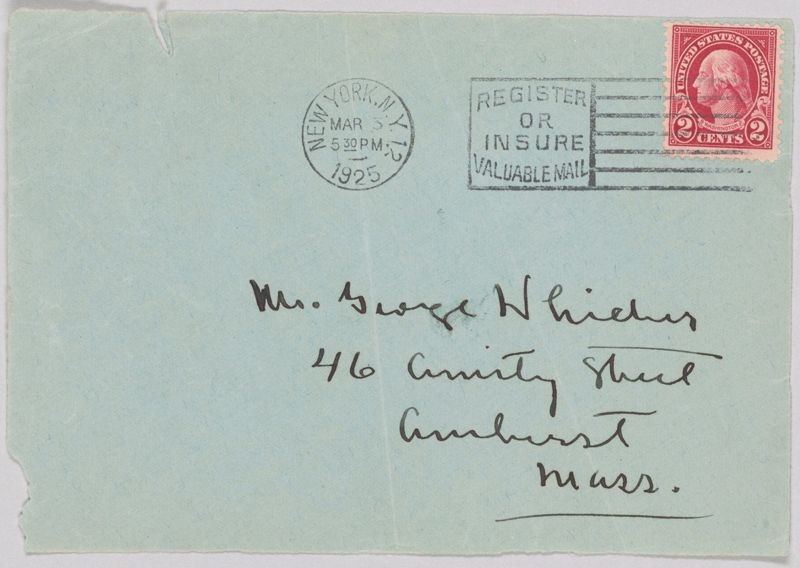 NEW YORK, N.Y. 12
MAR 5
5 30 PM
1925
REGISTER
OR
INSURE
VALUABLE MAIL
UNITED STATES POSTAGE
WASHINGTON
2 CENTS 2
Mr. George Whicher
46 Amity Street
Amherst
Mass.